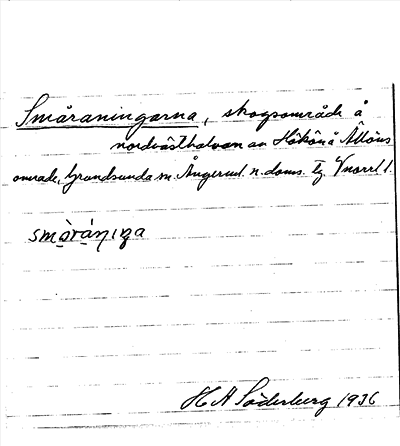 Småraningarna, skogsområde å
nordvästhalvan av Hökön å Ålöns
område, Grundsunda sn. Ångerml. n. doms. tg. Vnorrl. l.
småråŋıga
H A Söderberg 1936